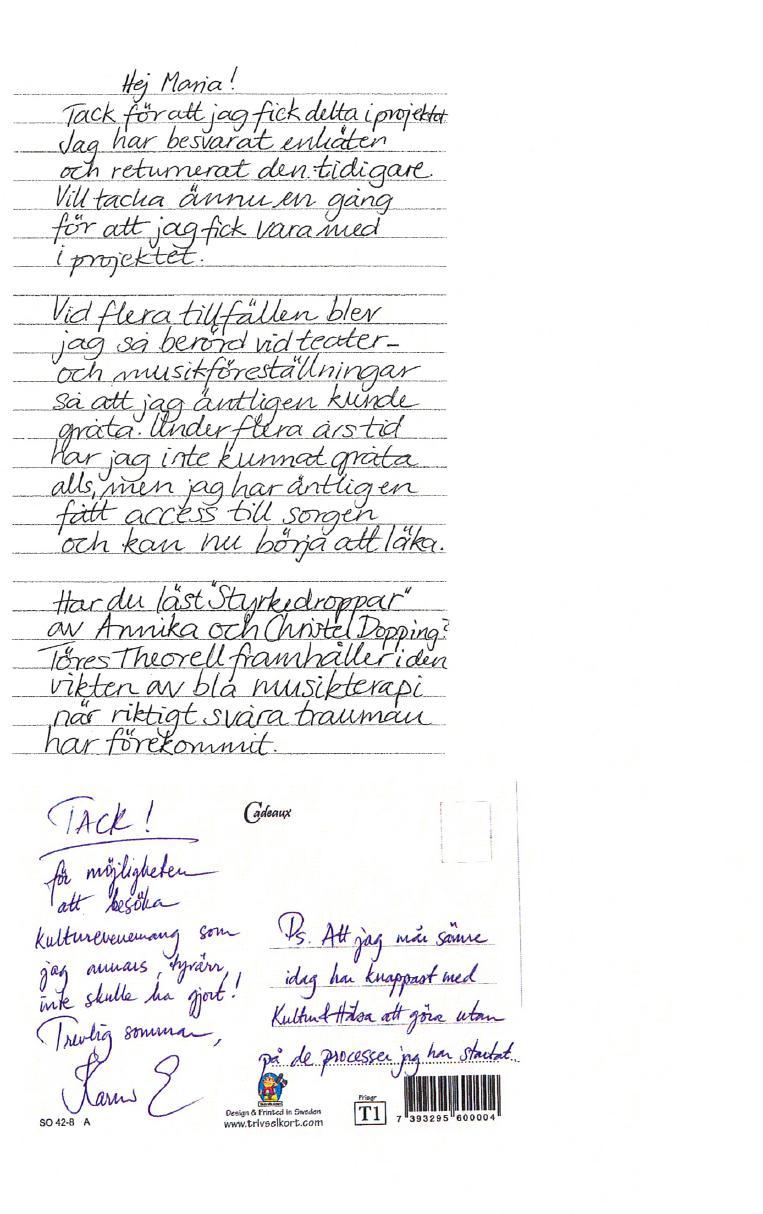 Hej Maria!
Tack för att jag fick delta i projektet
Jag har besvarat enkäten
och returnerat den tidigare.
Vill tacka ännu en gång
för att jag fick vara med
i projektet.
Vid flera tillfällen blev
jag så berörd vid teater-
och musikföreställningar
så att jag äntligen kunde
gråta. Under flera års tid
har jag inte kunnat gråta
alls, men jag har äntligen
fått access till sorgen
och kan nu börja att läka.
Har du läst "Styrkedroppar"
av Annika och Christel Dopping?
Töres Theorell framhåller i den
vikten av bla musikterapi
när riktigt svåra trauman
har förekommit.
TACK!
för möjligheten
att besöka
kulturevenemang som
jag annars, tyvärr,
inte skulle ha gjort!
Trevlig sommar,
Karin E
Cadeaux
Ps. Att jag mår sämre
idag har knappast med
Kultur & Hälsa att göra utan
på de processer jag har startat.
SO 42-8 A
Design & Printed in Sweden
www.trivselkort.com
Prisgr
T1
7 393295 600004